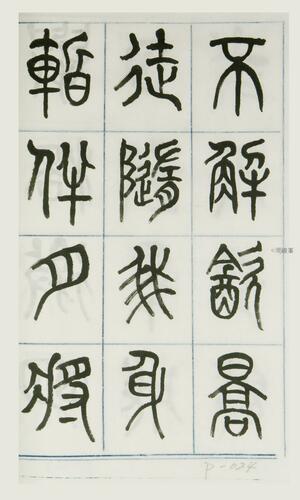 不解飲景
徒隨我身
暫伴月將
p-024